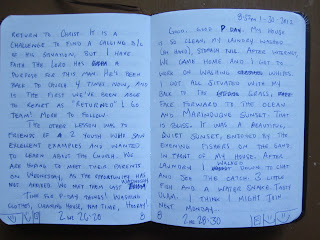 RETURN TO CHRIST. IT IS A
CHALLENGE TO FIND A CALLING B/C
OF HIS SITUATION, BUT I HAVE
FAITH THE LORD HAS A
PURPOSE FOR THIS MAN. HE'S BEEN
BACK TO CHURCH 4 TIMES NOW, AND
IS THE FIRST WE'VE BEEN ABLE
TO REPORT AS "RETURNED"! GO
TEAM! MORE TO FOLLOW.
THE OTHER LESSON WAS TO
FRIENDS OF A 2 YOUTH WHO SAW
EXCELLENT EXAMPLES AND WANTED
TO LEARN ABOUT THE CHURCH. WE
ARE HOPING TO MEET THEIR PARENTS
ON WEDNESDAY, AS THE OPPORTUNITY HAS
NOT ARRIVED. WE MET THEM LAST
TIME FOR P-DAY THINGS! WASHING
CLOTHES, CLEANING HOUSE, NAP TIME, HOORAY!
2 NE 26:20
8
8:37PM 1-30-2012
GOOD. GOOD P DAY. MY HOUSE
IS SO CLEAN, MY LAUNDRY WASHED
(BY HAND), STOMACH FULL. AFTER INTERNET,
WE CAME HOME AND I GOT TO
WORK ON WASHING WHILES.
I GOT ALL SITUATED WITH MY
BACK TO THE GRASS,
FACE FORWARD TO THE OCEAN
AND MARINDUQUE SUNSET. THAT
IS BLISS. IT WAS A BEAUTIFUL,
QUIET SUNSET, ENJOYED BY THE
EVENING FISHERS ON THE SAND,
IN FRONT OF MY HOUSE. AFTER
LAUNDRY I WALKED DOWN TO CHAT
AND SEE THE CATCH: 3 LITTLE
FISH AND A WATER SNAKE. TASTY
ULAM. I THINK I MIGHT JOIN
NEXT MONDAY.
2 NE 28:30
8